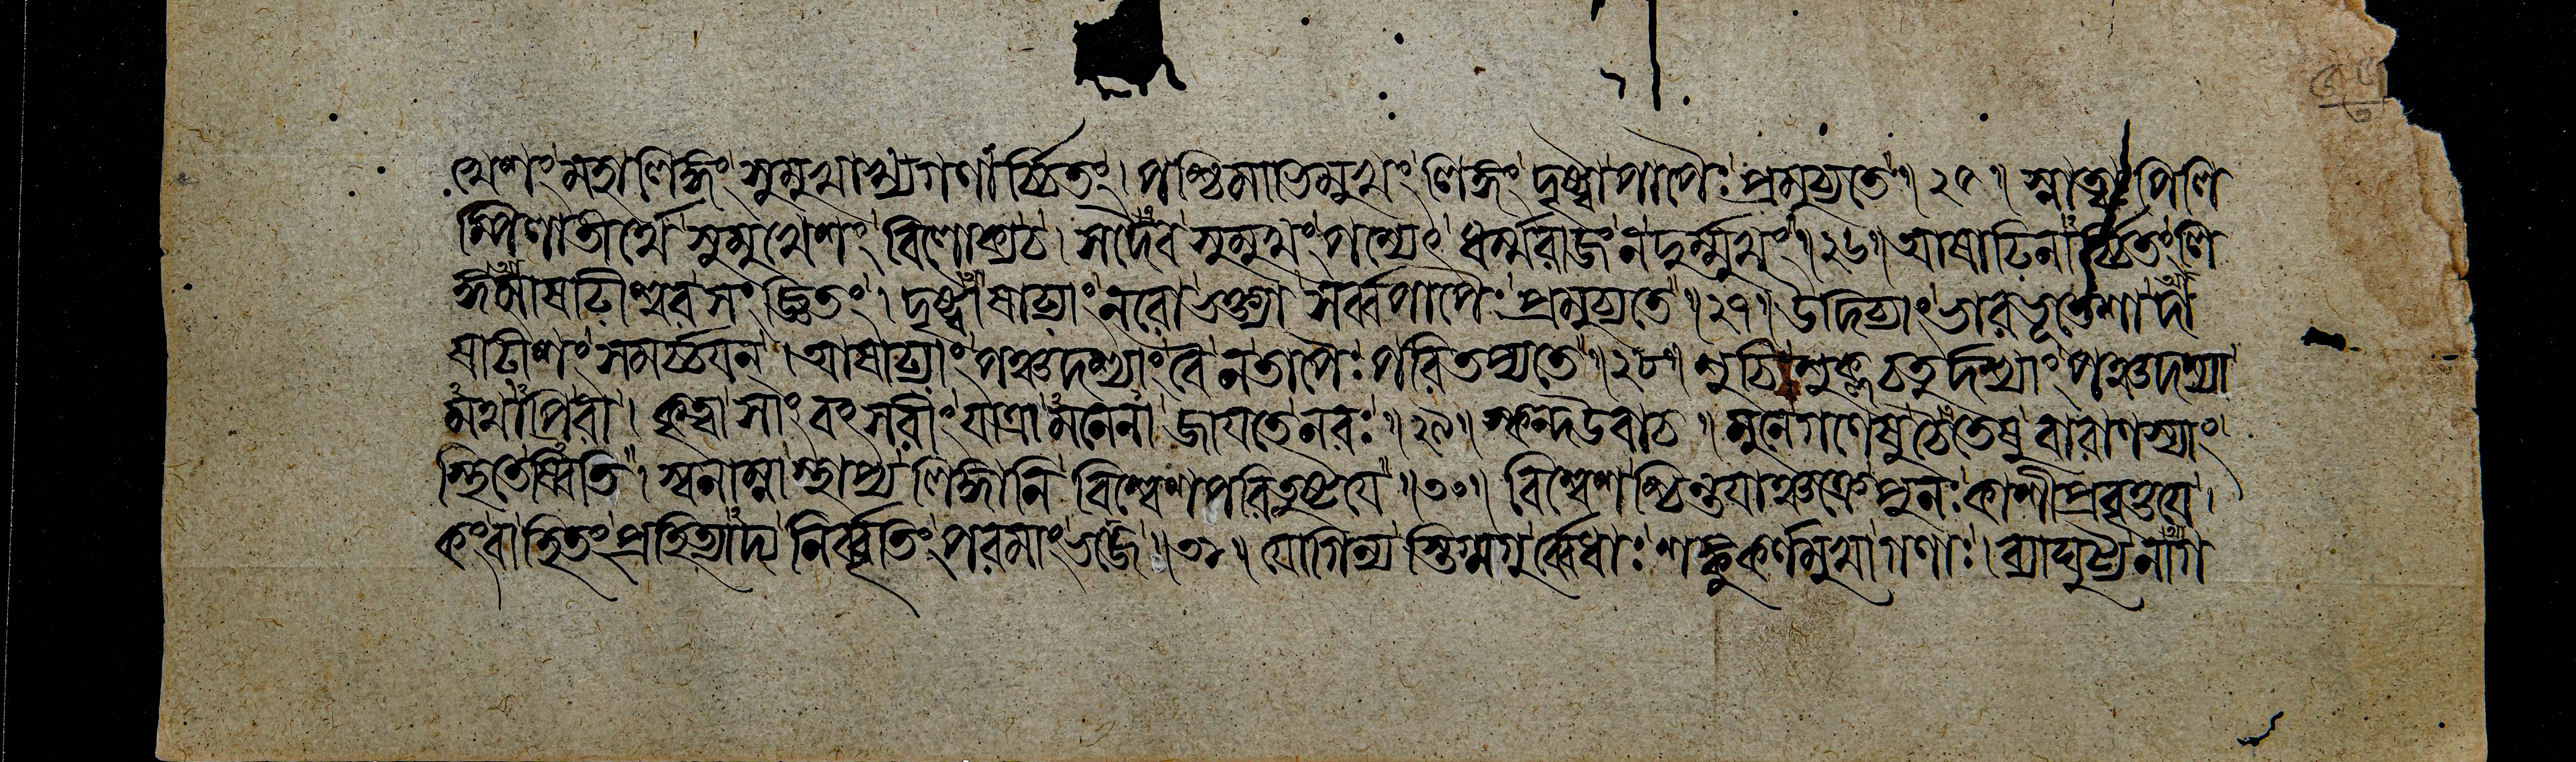 খেশং মহালিঙ্গং সুমুখাখ্যগণার্চ্চিতং। পশ্চিমাভিমুখং লিঙ্গং দৃষ্ট্বা পাপৈঃ প্রমুচ্যতে॥২৫॥ স্নাত্বা পিলি
প্পিলাতীর্থে সুমুখেশং বিলোক্য চ। সদৈব সুমুখং পশ্যেৎ ধর্ম্মরাজং ন দুর্ম্মুখং॥২৬॥ আষাঢিনার্চ্চিতং লি
ঙ্গমাষাঢীশ্বরসংজ্ঞিতং। দৃষ্ট্বাষাঢ্যাং নরো ভক্ত্যা সর্ব্বপাপৈঃ প্রমুচ্যতে॥২৭॥ উদিচ্যাং ভারভূতেশাদা
ষাঢীশং সমর্চ্চয়ন্। আষাঢ্যাং পঞ্চদশ্যাং বৈ ন তাপৈঃ পরিতপ্যতে॥২৮॥ শুচিশুক্লচতুর্দশ্যাং পঞ্চদশ্যা
মথাপি বা। কৃত্বা সাংবৎসরীং যাত্রামনেনা জায়তে নরঃ॥২৯॥ স্কন্দ উবাচ॥ মুনে গণেষু চৈতেষু বারাণস্যাং
স্থিতেষ্বিতি। স্বনাম্না স্থাপ্য লিঙ্গানি বিশ্বেশপরিতুষ্টয়ে॥৩০॥ বিশ্বেশশ্চিন্তয়াঞ্চক্রে পুনঃ কাশীপ্রবৃত্তয়ে।
কং বা হিতং প্রহিত্যাদ্য নির্ব্বৃতিং পরমাং ভজে॥৩১॥ যোগিন্যস্তিগ্মগুর্ব্বেধাঃ শঙ্কুকর্ণমুখা গণাঃ। ব্যাঘুট্য নাগ